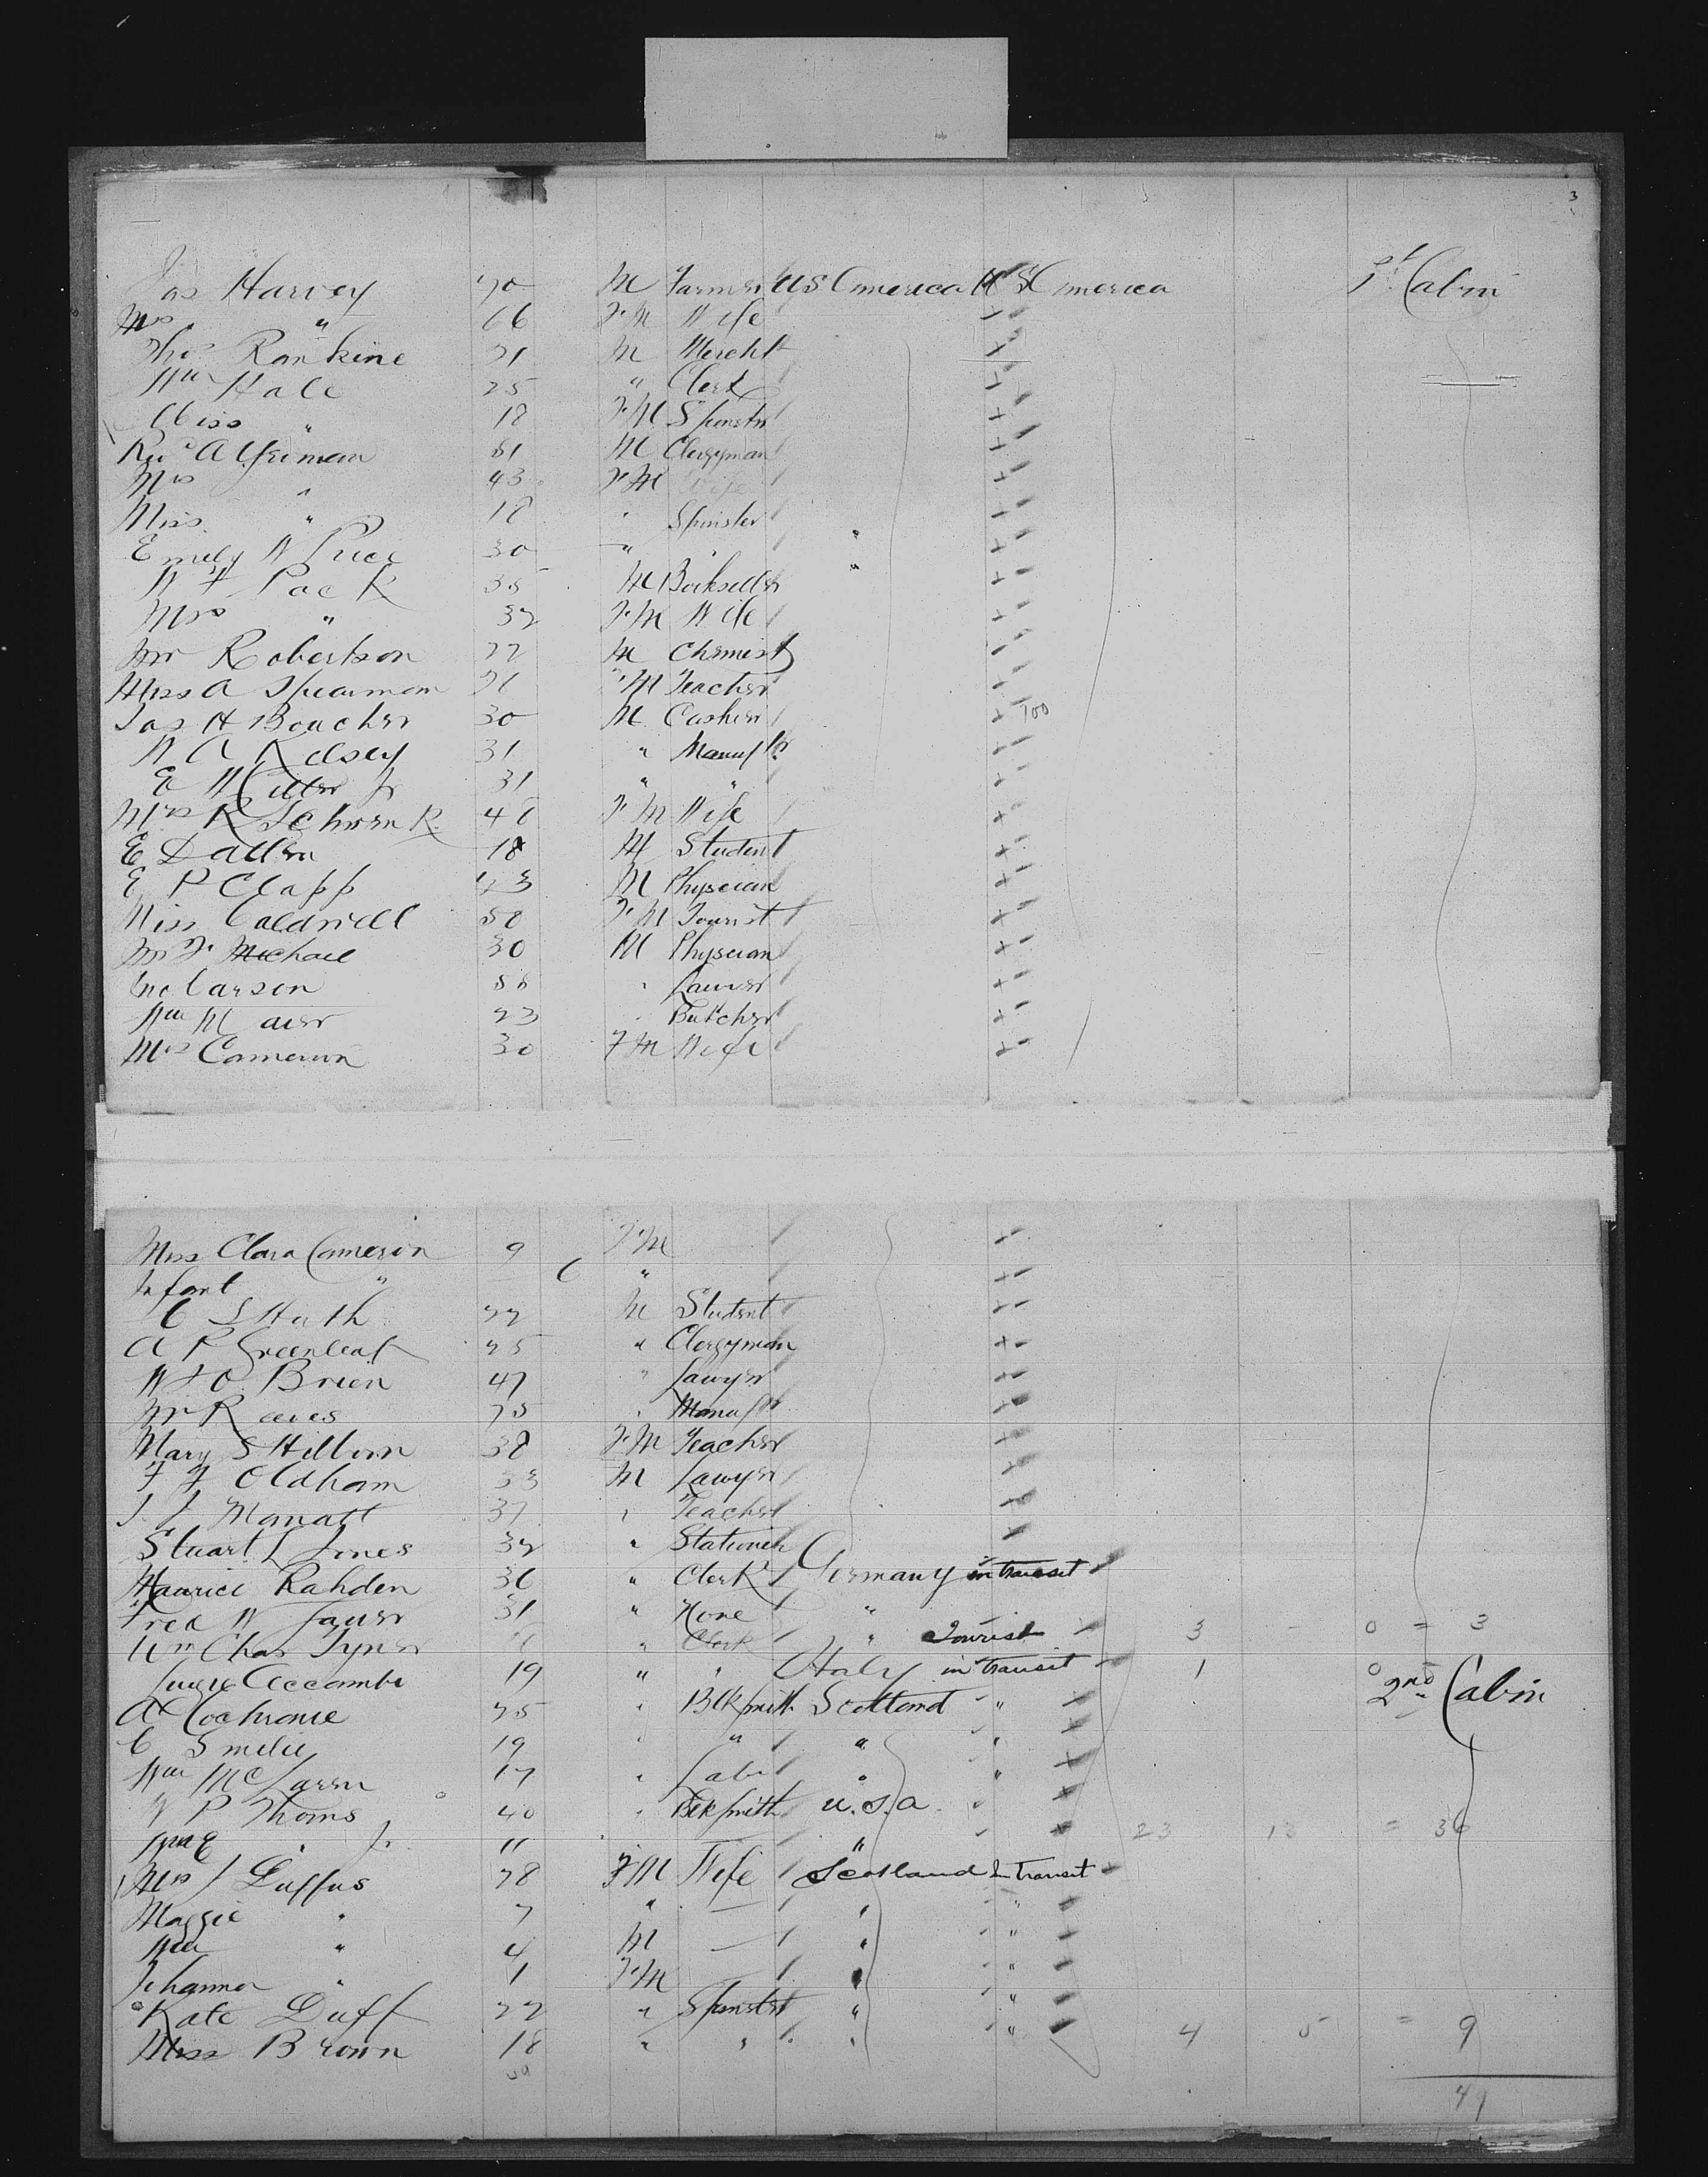 3
Jas Harvey 70 M Farmer U S America U S America 1st Cabin
Mrs " 66 F.M Wife
Thos Rankine 21 M Mercht
Wm Hale 25 " Clerk
Miss " 18 F.M Spinstr
Rev A M Clergyman
Mrs " 43 F.M Wife
Miss " 18 " Spinster
Emily W Price 30 " "
W F Pack 35 M Bookseller
Mrs " 32 F.M Wife
Mr Robertson 22 M Chemist
Miss A Spearman F.M Teacher
Jas H Boucher 30 M Cashier
W A Kelsey 31 " Manuftr
E W Jr 31 " "
Mrs R Schwenk F.M Wife
E D Allen 18 M Student
E P Clapp 43 M Physician
Miss Caldwell F.M Tourist
Mr F Michael 30 M Physician
Carson "
Wm 23 " Butcher
Mrs Cameron 30 F M Wife
Miss Clara Cameron 9 F.M
Infant " 6 "
C S 22 M Student
A P Greenleaf 25 " Clergyman
W J O Brien 47 " Lawyer
Mr Reeves 25 " Manuftr
Mary S Hilborn 38 F.M Teacher
F F Oldham 33 M Lawyer
J J Manatt 37 " Teacher
Stuart L Jones 32 "
Maurice Rahden 36 " Clerk Germany in transit
Fred W Lauer 31 " None "
Wm Chas Tyner " Clerk " Tourist 3 - 0 = 3
19 " " Italy in transit 1 0
2nd Cabin
A Cochrane 25 " Blksmith Scotland " "
C Smilie 19 " " " "
Wm McLaren 17 " Labr " "
P Thoms 40 " Blksmith U.S.A.
Wm E " Jr 11 " 23 13 = 36
Mrs J Duffus 28 F.M Wife Scotland In transit
Maggie " 7 " — " "
Wm " 4 M — " "
Johanna " 1 F.M — " "
Kate Duff 22 " Spinster " "
Miss Brown 18 " " " " 4 5 = 9